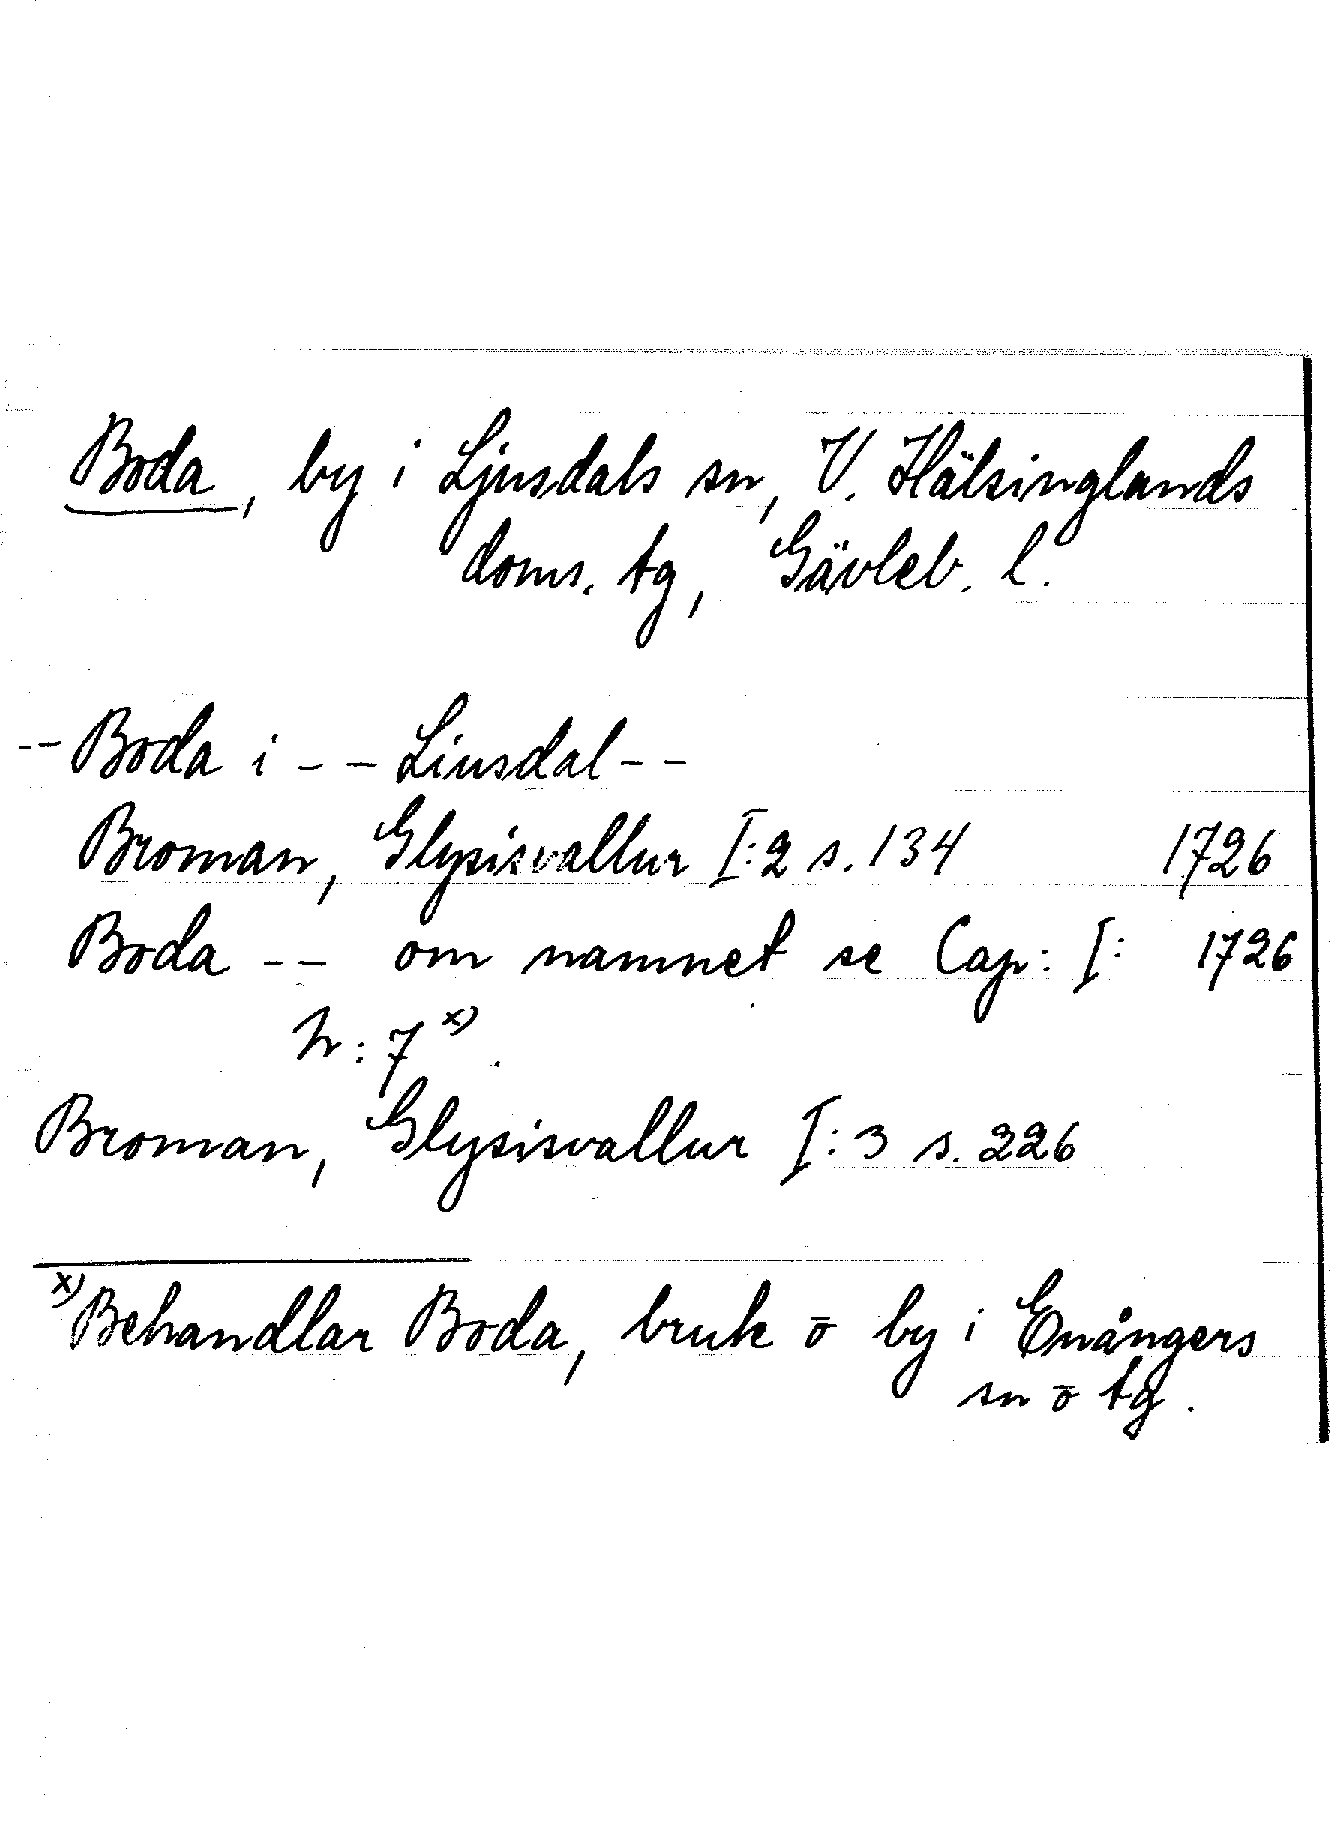 Boda, by i Ljusdals sn, V. Hälsinglands
doms. tg, Gävleb. l.
-- Boda i -- Liusdal --
Broman, Glysisvallur I:2 s. 134 1726
Boda -- om namnet se Cap: I: 1726
N: 7 x).
Broman, Glysisvallur I:3 s. 226
x) Behandlar Boda, bruk o by i Enångers
sn o tg.